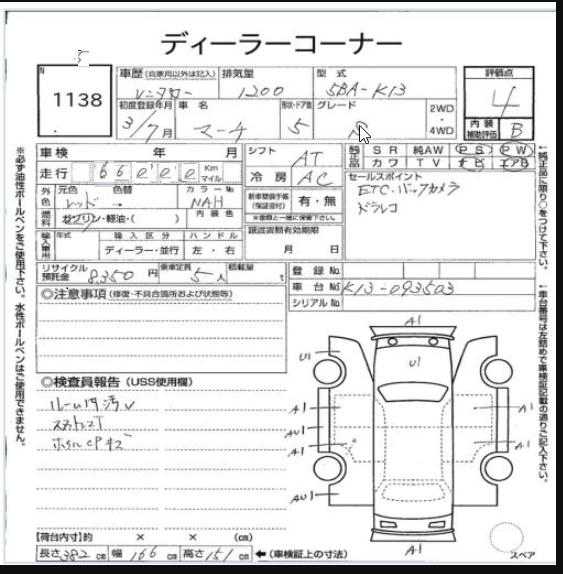 ディーラーコーナー
No 1138
車歴 (自家用以外は記入) レンタカー
排気量 1200
型式 5BA-K13
評価点 4
内装補助評価 B
初度登録年月 3/7月
車名 マーチ
形状・ドア数 5
グレード
2WD・4WD
車検 年 月
シフト AT
純正品 SR 純AW PS PW
カワ TV ナビ エアB
走行 Km マイル
冷房 AC
セールスポイント
ETC.バックカメラ
ドラレコ
外色 元色 レッド 色替 カラーNo. NAH
新車整備手帳(保証書付) 有・無
※書類と一緒に保管下さい。
燃料 ガソリン・軽油・( ) 内装色
譲渡書類有効期限
月 日
輸入車用 年式 輸入区分 ディーラー・並行 ハンドル 左・右
リサイクル預託金 8,350円
乗車定員 5人
積載量 t
登録No.
車台No. K13-093503
シリアルNo.
◎注意事項 (修復・不具合箇所および状態等)
◎検査員報告 (USS使用欄)
ルーム内汚
ホイルCPキズ
A1
U1
U1
A1
AU1
A1
AU1
A1
A1
A1
スペア
【荷台内寸】約 × × (cm)
長さ382cm 幅166cm 高さ151cm ←(車検証上の寸法)
※必ず油性ボールペンをご使用下さい。水性ボールペンはご使用できません。
↑純正品に限り○をつけて下さい。
↑車台番号は左詰めで車検証記載の通りご記入下さい。